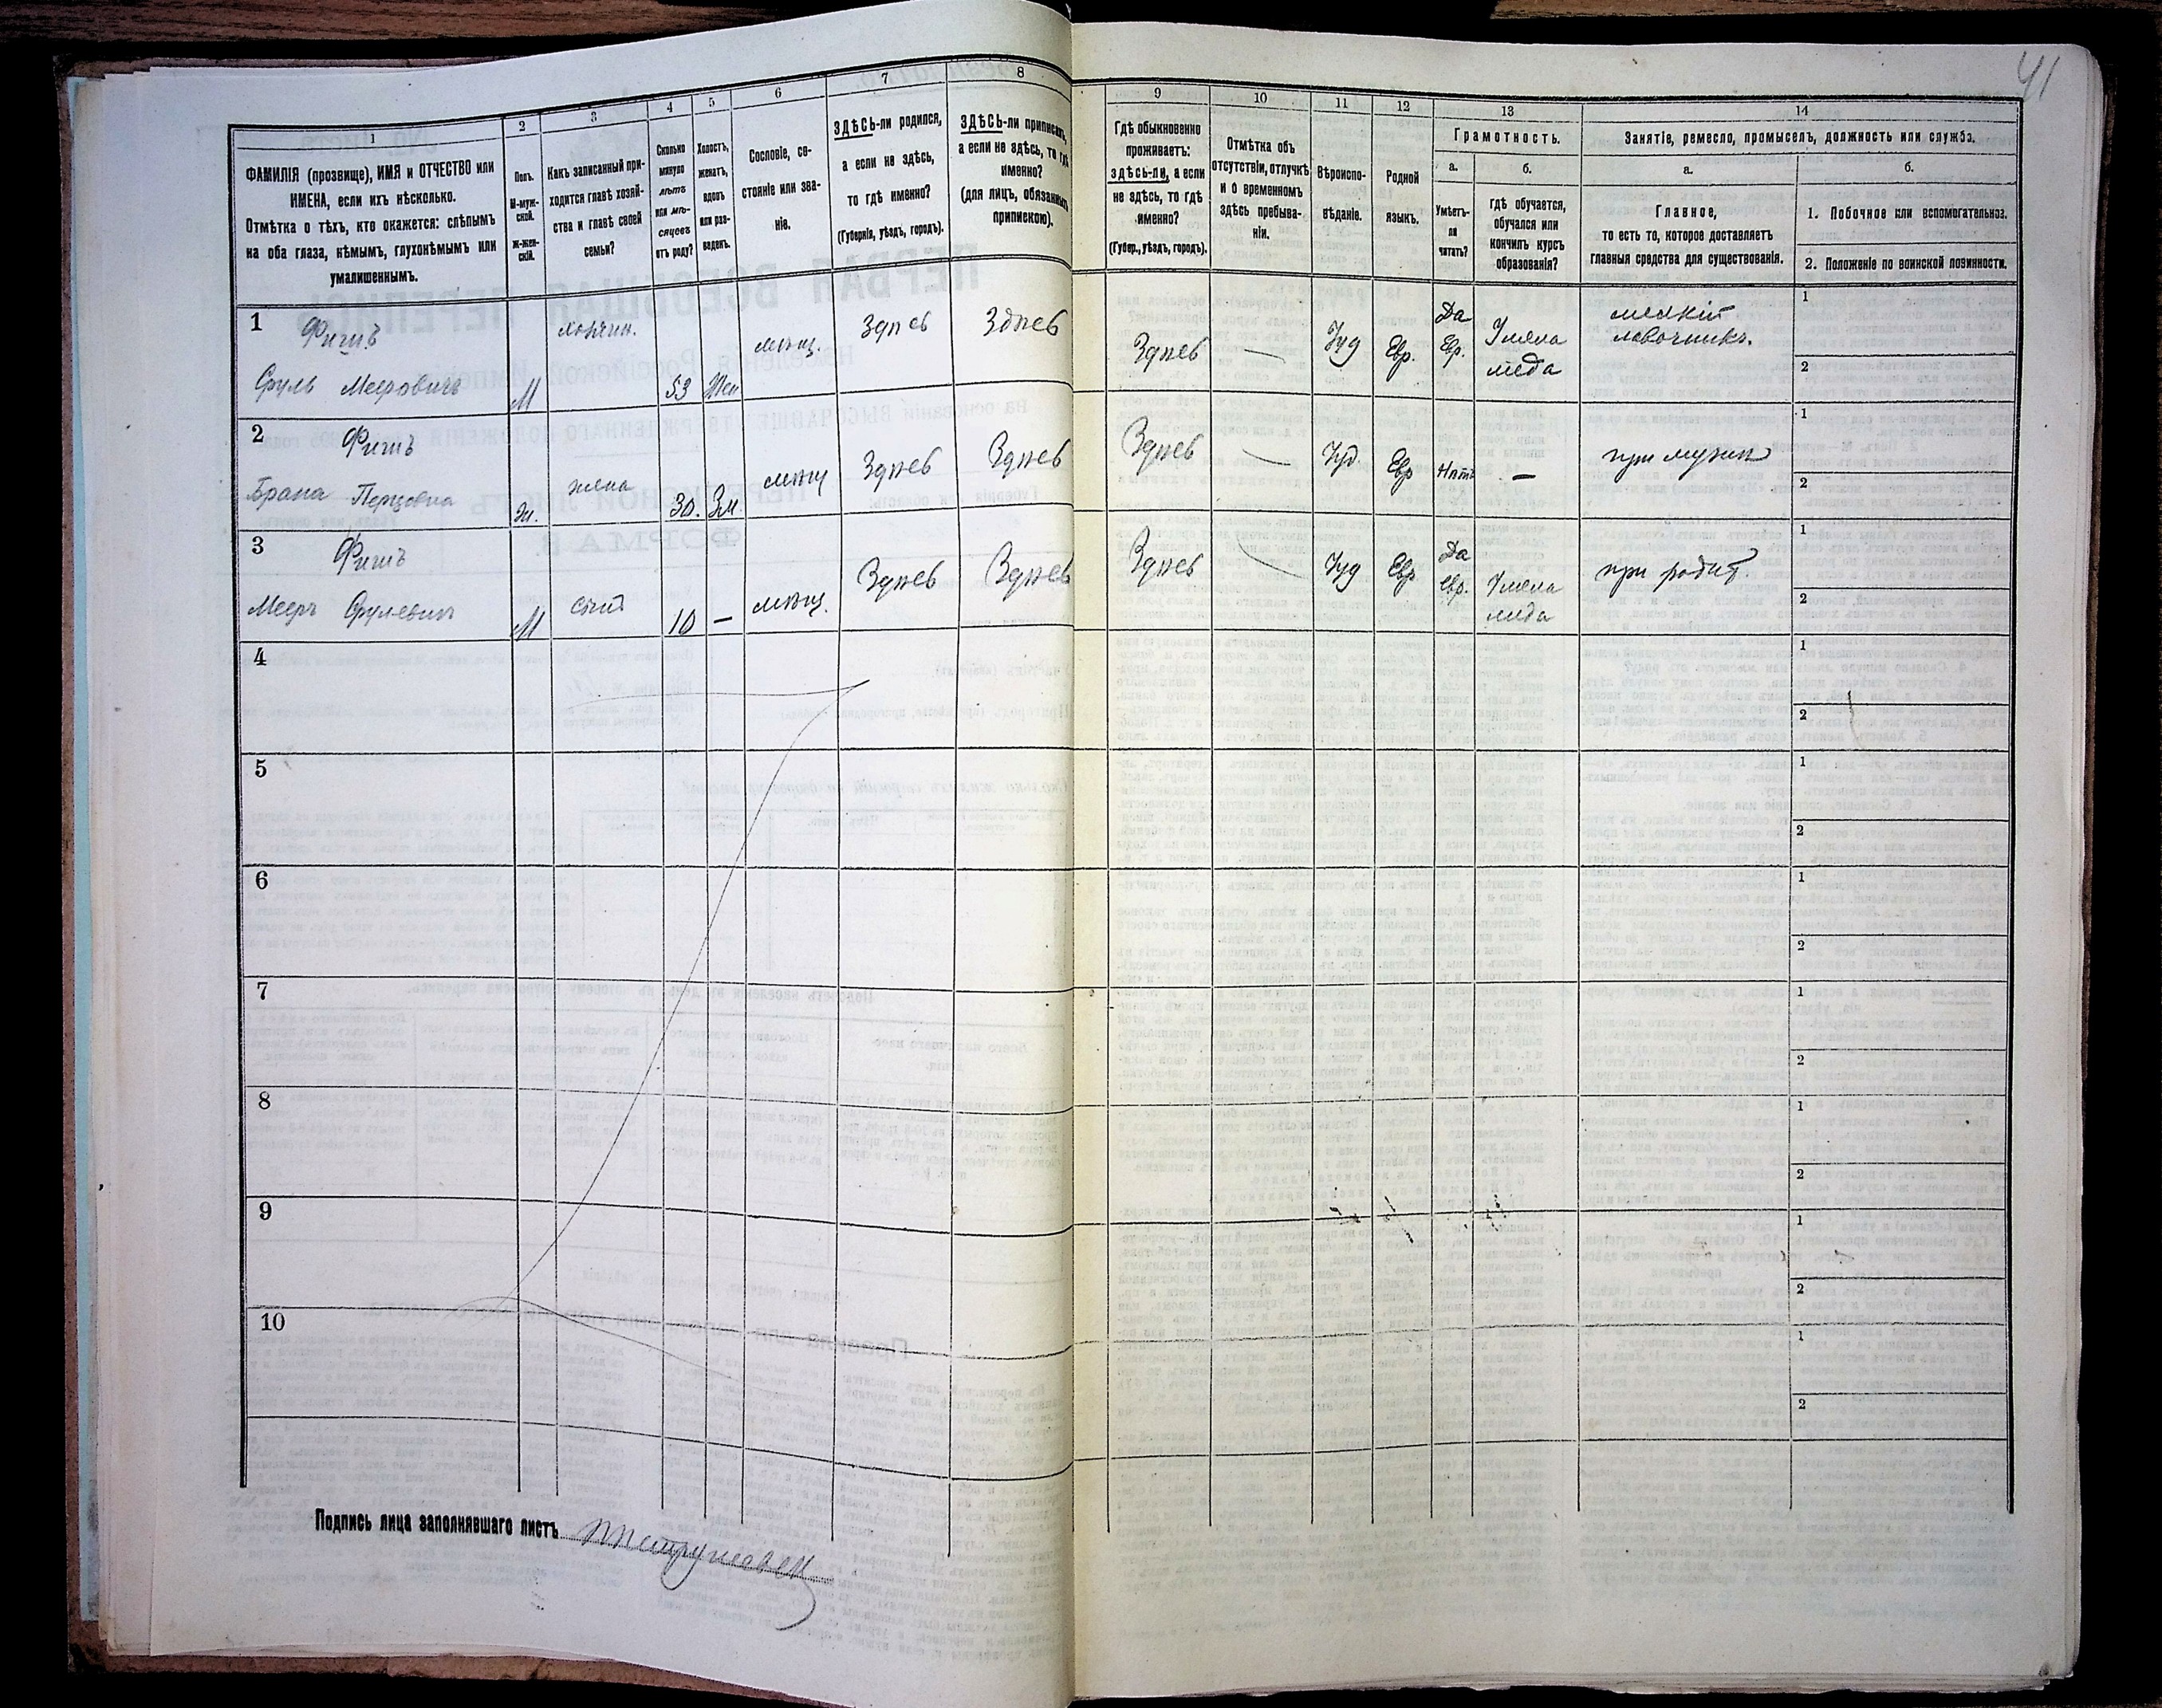 41
1
ФАМИЛІЯ (прозвище), ИМЯ и ОТЧЕСТВО или
ИМЕНА, если ихъ нѣсколько.
Отмѣтка о тѣхъ, кто окажется: слѣпымъ
на оба глаза, нѣмымъ, глухонѣмымъ или
умалишеннымъ.
2
Полъ.
М-муж-
ской.
Ж-жен-
скій.
3
Какъ записанный при-
ходится главѣ хозяй-
ства и главѣ своей
семьи?
4
Сколько
минуло
лѣтъ
или мѣ-
сяцевъ
отъ роду?
5
Холостъ,
женатъ,
вдовъ
или раз-
веденъ.
6
Сословіе, со-
стояніе или зва-
ніе.
7
ЗДѢСЬ-ли родился,
а если не здѣсь,
то гдѣ именно?
(Губернія, уѣздъ, городъ).
8
ЗДѢСЬ-ли приписанъ,
а если не здѣсь, то гдѣ
именно?
(для лицъ, обязанныхъ
припискою).
9
Гдѣ обыкновенно
проживаетъ:
здѣсь-ли, а если
не здѣсь, то гдѣ
именно?
(Губер., уѣздъ, городъ).
10
Отмѣтка объ
отсутствіи, отлучкѣ
и о временномъ
здѣсь пребыва-
ніи.
11
Вѣроиспо-
вѣданіе.
12
Родной
языкъ.
13
Грамотность.
а.
Умѣетъ-
ли
читать?
б.
гдѣ обучается,
обучался или
кончилъ курсъ
образованія?
14
Занятіе, ремесло, промыселъ, должность или служба.
а.
Главное,
то есть то, которое доставляетъ
главныя средства для существованія.
б.
1. Побочное или вспомогательное.
2. Положеніе по воинской повинности.
1
Фишъ
Сруль Мееровичъ
М
хозяин.
53
Жен
мѣщ.
Здѣсь
Здѣсь
Здѣсь
—
Іуд
Евр.
Да
Евр.
мелкій
лавочникъ.
1
2
2
Фишъ
Брана Перцовна
ж.
жена
30.
Зм.
мѣщ
Здѣсь
Здѣсь
Здѣсь
—
Іуд.
Евр
Нѣтъ
—
при мужѣ
1
2
3
Фишъ
Мееръ Срулевичъ
М
сынъ
10
—
мѣщ.
Здѣсь
Здѣсь
Здѣсь
—
Іуд
Евр
Да
Евр.
при родит.
1
2
4
1
2
5
1
2
6
1
2
7
1
2
8
1
2
9
1
2
10
1
2
Подпись лица заполнявшаго листъ